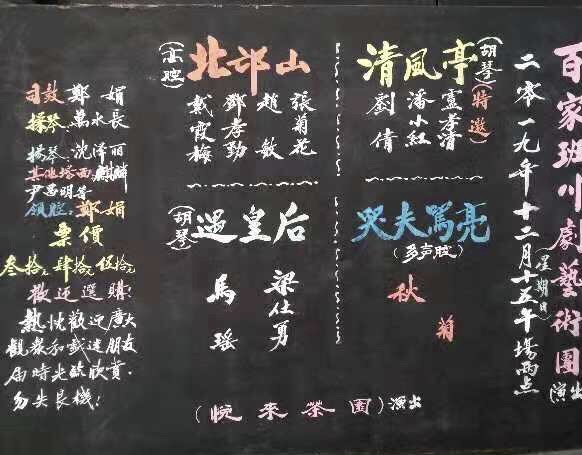 百家班川劇藝術團演出
二零一九年十二月十五(星期日)午場兩点
清風亭(胡琴)
(特邀)
李清
潘小紅
劉倩
北邙山(高腔)
張菊花
趙敏
鄧孝勁
戴霞梅
哭夫罵亮
(多声腔)
秋菊
遇皇后(胡琴)
梁仕勇
馬瑤
(悦来茶園)演出
司鼓:鄭娟
操琴:萬水長
揚琴:沈泽丽
其他場面:麒麟
尹昌明等
领腔:鄭娟
票價
叁拾元肆拾元伍拾元
歡迎選購!
熱忱歡迎廣大
觀衆和戲迷朋友
届時光臨欣賞.
勿失良機!